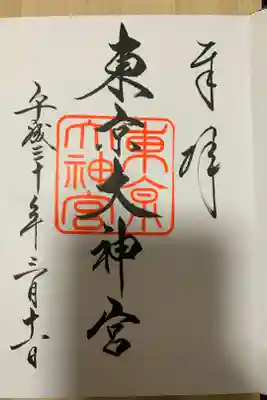 奉拝
東京大神宮
東京大神宮
平成三十年三月十一日